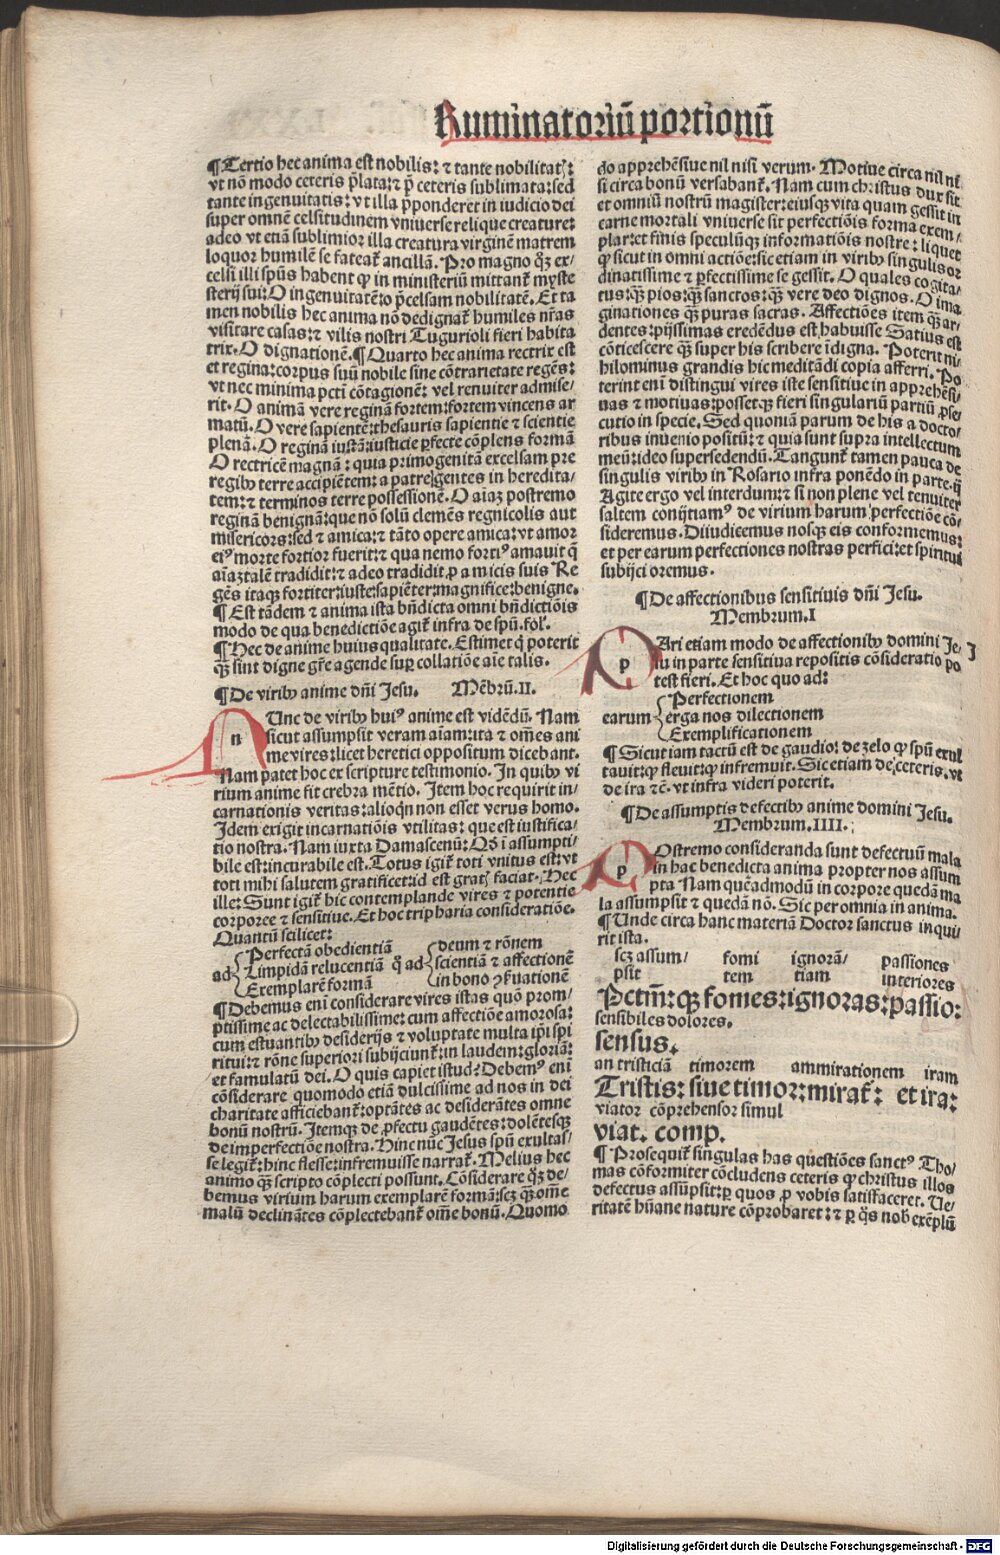 Ruminatoriū portionū
¶Tertio hec anima est nobilis: ⁊ tante nobilitatꝭ:
vt nō modo ceteris p̄lata: ⁊ p̄ ceteris sublimata: sed
tante ingenuitatis: vt illa p̄ponderet in iudicio dei
super omnē celsitudinem vniuerse relique creature:
adeo vt etiā sublimior illa creatura virginē matrem
loquor humilē se fateat᷑ ancillā. Pro magno qͦꝫ ex⸗
celsi illi spūs habent ꝙ in ministeriū mittant᷑ myste
sterij sui: O ingenuitatē: o p̄celsam nobilitatē. Et ta
men nobilis hec anima nō dedignat᷑ humiles nr̄as
visitare casas: ⁊ vilis nostri Tugurioli fieri habita
trix. O dignationē. ¶Quarto hec anima rectrix est
et regina: corpus suū nobile sine cōtrarietate regēs:
vt nec minima pcti cōtagionē: vel renuiter admise⸗
rit. O animā vere reginā fortem: fortem vincens ar
matū. O vere sapientē: thesauris sapientie ⁊ scientie
plenā. O reginā iustā: iusticie ꝑfecte cōplens formā
O rectricē magnā: quia primogenitā excelsam pre
regibꝰ terre accipiētem: a patre gentes in heredita⸗
tem: ⁊ terminos terre possessionē. O aīaꝫ postremo
reginā benignā: que nō solū clemēs regnicolis aut
misericors: sed ⁊ amica: ⁊ tāto opere amica: vt amor
eiꝰ morte fortior fuerit: ⁊ qua nemo fortiꝰ amauit q̄
aīaꝫ talē tradidit: ⁊ adeo tradidit ꝓ amicis suis Re
gēs itaqꝫ fortiter: iuste: sapiēter: magnifice: benigne.
¶Est tādem ⁊ anima ista bn̄dicta omni bn̄dictiōis
modo de qua benedictiōe agit᷑ infra de spū. fol.
¶Hec de anime huius qualitate. Estimet q̇ poterit
qꝫ̄ sint digne gr̄e agende suꝑ collatiōe aīe talis.
¶De viribꝰ anime dn̄i Jesu. Mēbrū. II.
n Unc de viribꝰ huiꝰ anime est vidēdū. Nam
sicut assumpsit veram aīam: ita ⁊ om̄es ani
me vires: licet heretici oppositum dicebant.
Nam patet hoc ex scripture testimonio. In quibꝰ vi
rium anime fit crebra mētio. Item hoc requirit in⸗
carnationis veritas: alioqn̄ non esset verus homo.
Idem exigit incarnatiōis vtilitas: que est iustifica⸗
tio nostra. Nam iuxta Damascenū: Qd̓ ī assumpti⸗
bile est: incurabile est. Totus igit᷑ toti vnitus est: vt
toti mihi salutem gratificet: id est gratꝭ faciat. Hec
ille: Sunt igit᷑ hic contemplande vires ⁊ potentie
corporee ⁊ sensitiue. Et hoc tripharia consideratiōe.
Quantū scilicet:
ad Perfectā obedientiā q̄ ad deum ⁊ rōnem
Limpidā relucentiā scientiā ⁊ affectionē
Exemplarē formā in bono ꝯẜuationē
¶Debemus enī considerare vires istas quō prom⸗
ptissime ac delectabilissime: cum affectiōe amorosa:
cum estuantibꝰ desiderijs ⁊ voluptate multa ip̄i spi
ritui: ⁊ rōne superiori subijciunt᷑: in laudem: gloriā:
et famulatū dei. O quis capiet istud? Debemꝰ enī
cōsiderare quomodo etiā dulcissime ad nos in dei
charitate afficiebant᷑: optātes ac desiderātes omne
bonū nostrū. Itemqꝫ de ꝓfectu gaudētes: dolētesqꝫ
de imperfectiōe nostra. Hinc nūc Jesus spū exultas⸗
se legit᷑: hinc flesse: infremuisse narrat᷑. Melius hec
animo qꝫ̄ scripto cōplecti possunt. Cōsiderare qͦꝫ de⸗
bemus virium harum exemplarē formā: scꝫ qꝫ̄ om̄e
malū declinātes cōplectebant᷑ om̄e bonū. Quomo
do apprehēsiue nil nisi verum. Motiue circa nil nī
si circa bonū versabant᷑. Nam cum christus dux sit
et omniū nostrū magister: eiusqꝫ vita quam gessit in
carne mortali vniuerse sit perfectiōis forma exem⸗
plar: et finis speculūqꝫ informatiōis nostre: liquet
ꝙ sicut in omni actiōe: sic etiam in viribꝰ singulis or
dinatissime ⁊ ꝑfectissime se gessit. O quales cogita⸗
tus: qꝫ̄ pios: qꝫ̄ sanctos: qꝫ̄ vere deo dignos. O ima
ginationes qꝫ̄ puras sacras. Affectiōes item qꝫ̄ ar⸗
dentes: pijssimas eredēdus est habuisse Satius est
cōticescere qꝫ̄ super his scribere īdigna. Poterit ni⸗
hilominus grandis hic meditādi copia afferri. Po
terint enī distingui vires iste sensitiue in apprehēsi⸗
uas ⁊ motiuas: possetqꝫ fieri singulariū partiū ꝓse⸗
cutio in specie. Sed quoniā parum de his a docto⸗
ribus inuenio positū: ⁊ quia sunt supra intellectum
meū: ideo supersedendū. Tangunt᷑ tamen pauca de
singulis viribꝰ in Rosario infra ponēdo in parte. ij
Agite ergo vel interdum: ⁊ si non plene vel tenuiter
saltem conijtiamꝰ de virium harum perfectiōe cō⸗
sideremus. Diiudicemus nosqꝫ eis conformemus:
et per earum perfectiones nostras perfici: et spiritui
subijci oremus.
¶De affectionibus sensitiuis dn̄i Jesu.
Membrum. I
p Ari etiam modo de affectionibꝰ domini Je⸗
su in parte sensitiua repositis cōsideratio po
test fieri. Et hoc quo ad:
earum Perfectionem
erga nos dilectionem
Exemplificationem
¶Sicut iam tactū est de gaudio: de zelo ꝙ spū exul
tauit: ꝙ fleuit: ꝙ infremuit. Sic etiam de ceteris. vt
de ira ⁊c̄. vt infra videri poterit.
¶De assumptis defectibꝰ anime domini Jesu.
Membrum. IIII.
p Ostremo consideranda sunt defectuū mala
in hac benedicta anima propter nos assum
pta Nam quēadmodū in corpore quedā ma
la assumpsit ⁊ quedā nō. Sic per omnia in anima.
¶Unde circa hanc materiā Doctor sanctus inqui
rit ista.
scꝫ assum⸗ fomi ignorā⸗ passiones
psit tem tiam interiores
Pctm̄: qꝫ fomes: ignoras: passio:
sensibiles dolores.
sensus.
an tristiciā timorem ammirationem iram
Tristis: siue timor: mirat᷑: et ira:
viator cōprehensor simul
viat. comp.
¶Prosequit᷑ singulas has questiōes sanctꝰ Tho⸗
mas cōformiter cōcludens ceteris ꝙ christus illos
defectus assūpsit: ꝑ quos ꝓ vobis satisfaceret. Ue⸗
ritatē hūane nature cōprobaret: ⁊ ꝑ q̇s nob̓ exēplū